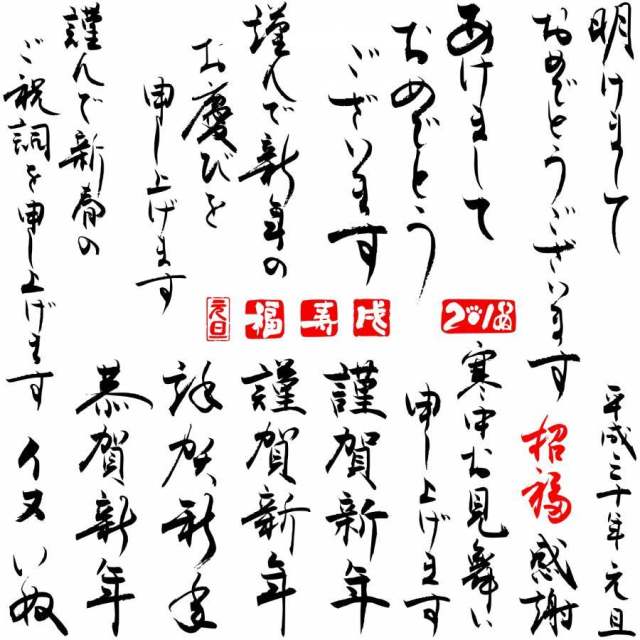 明けまして
おめでとうございます
あけまして
おめでとう
ございます
謹んで新年の
お慶びを
申し上げます
謹んで新春の
ご祝詞を申し上げます
2018
戌
寿
福
元旦
平成三十年元旦
招福
感謝
寒中お見舞い
申し上げます
謹賀新年
謹賀新年
謹賀新年
恭賀新年
イヌ
いぬ